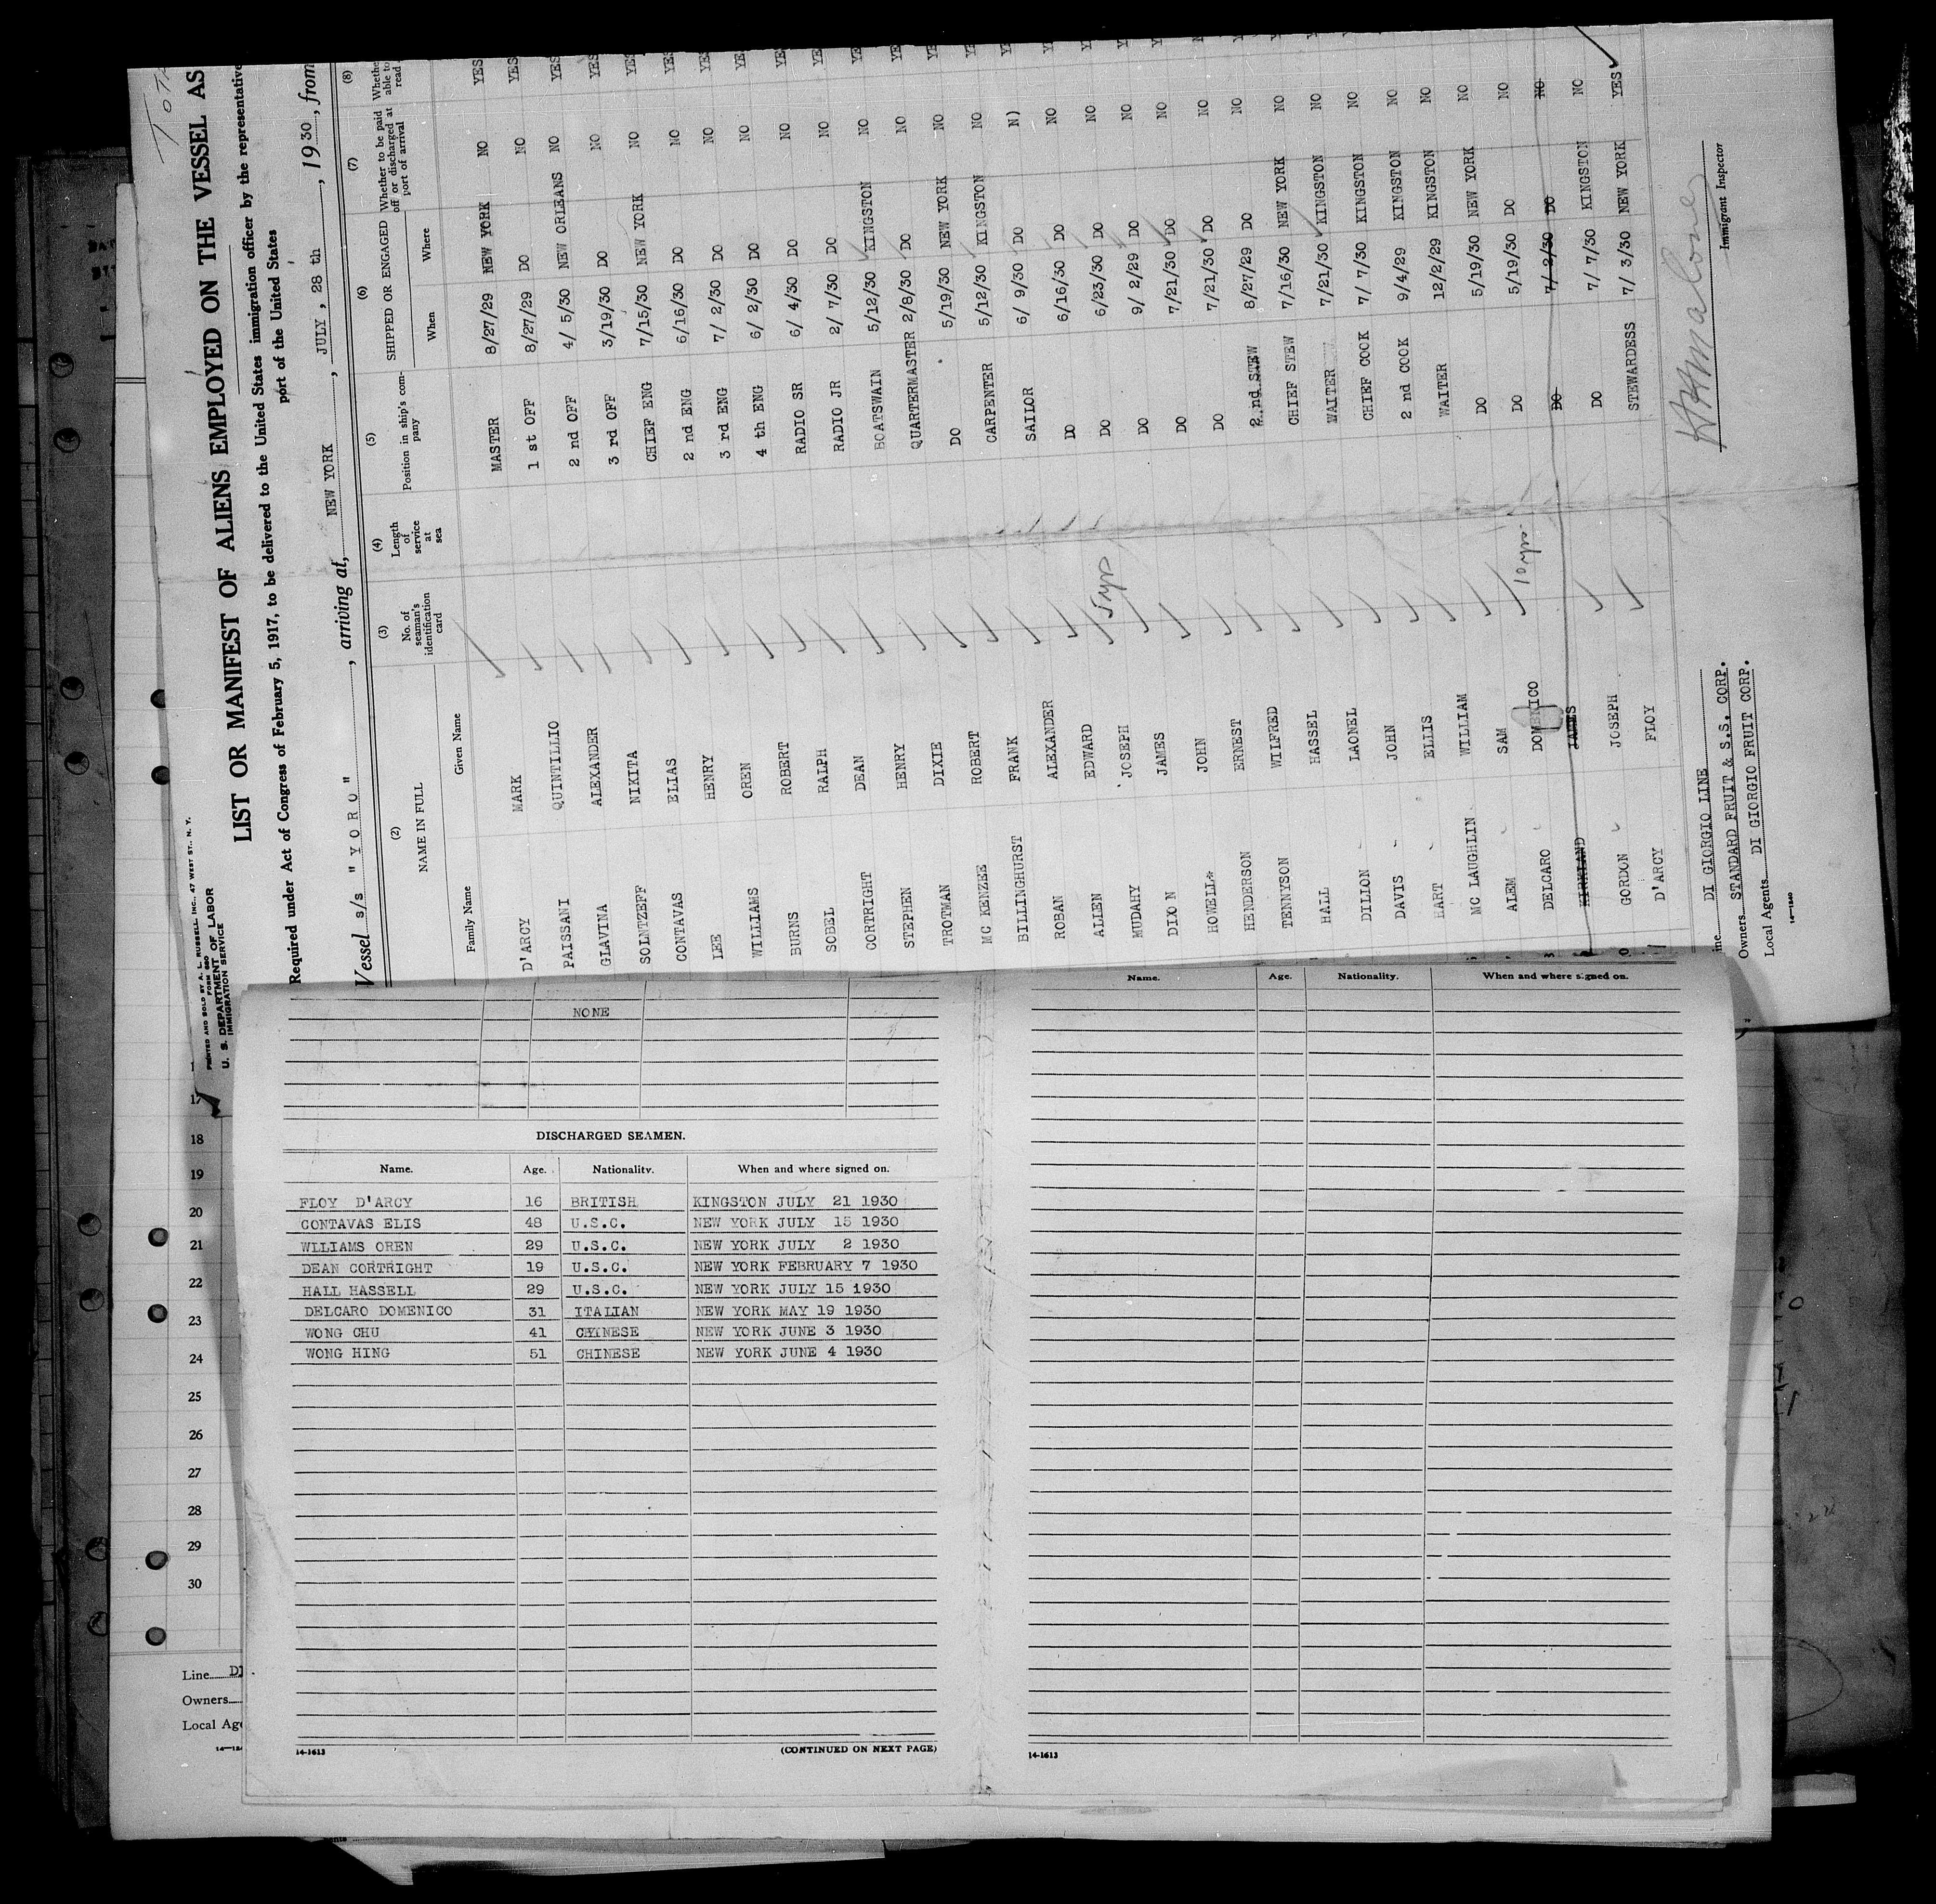 PRINTED AND SOLD BY A. L. RUSSELL, INC., 47 WEST ST., N. Y.
FORM 680
U. S. DEPARTMENT OF LABOR
IMMIGRATION SERVICE
LIST OR MANIFEST OF ALIENS EMPLOYED ON THE VESSEL AS
Required under Act of Congress of February 5, 1917, to be delivered to the United States immigration officer by the representative
port of the United States
Vessel s/s "YORO", arriving at, NEW YORK, JULY, 28 th, 1930, from
(2) (3) (4) (5) (6) (7) (8)
NAME IN FULL No. of seaman's identification card Length of service at sea Position in ship's company SHIPPED OR ENGAGED Whether to be paid off or discharged at port of arrival Whether able to read
Family Name Given Name When Where
D'ARCY MARK MASTER 8/27/29 NEW YORK NO YES
PAISSANI QUINTILLIO 1 st OFF 8/27/29 DO NO YES
GLAVINA ALEXANDER 2 nd OFF 4/ 5/30 NEW ORLEANS NO YES
SOLNTZEFF NIKITA 3 rd OFF 3/19/30 DO NO YES
CONTAVAS ELIAS CHIEF ENG 7/15/30 NEW YORK NO YES
LEE HENRY 2 nd ENG 6/16/30 DO NO YES
WILLIAMS OREN 3 rd ENG 7/ 2/30 DO NO YES
BURNS ROBERT 4 th ENG 6/ 2/30 DO NO
SOBEL RALPH RADIO SR 6/ 4/30 DO NO
CORTRIGHT DEAN RADIO JR 2/ 7/30 DO NO
STEPHEN HENRY BOATSWAIN 5/12/30 KINGSTON NO
TROTMAN DIXIE QUARTERMASTER 2/8/30 DO NO
MC KENZEE ROBERT DO 5/19/30 NEW YORK NO
BILLINGHURST FRANK CARPENTER 5/12/30 KINGSTON NO
ROBAN ALEXANDER SAILOR 6/ 9/30 DO N)
ALLEN EDWARD DO 6/16/30 DO NO
MUDAHY JOSEPH 5 yrs DO 6/23/30 DO NO
DIXON JAMES DO 9/ 2/29 DO NO
HOWELL* JOHN DO 7/21/30 DO NO
HENDERSON ERNEST DO 7/21/30 DO NO
TENNYSON WILFRED 2 nd STEW 8/27/29 DO NO
HALL HASSEL CHIEF STEW 7/16/30 NEW YORK NO
DILLON LAONEL WAITER 7/21/30 KINGSTON NO
DAVIS JOHN CHIEF COOK 7/ 7/30 KINGSTON NO
HART ELLIS 2 nd COOK 9/4/29 KINGSTON NO
MC LAUGHLIN WILLIAM WAITER 12/2/29 KINGSTON NO
ALEM SAM DO 5/19/30 NEW YORK NO
DELCARO DOMENICO 10 yrs DO 5/19/30 DO NO
KIRKLAND JAMES DO 7/ 2/30 DO NO
GORDON JOSEPH DO 7/ 7/30 KINGSTON NO
D'ARCY FLOY STEWARDESS 7/ 3/30 NEW YORK YES
DI GIORGIO LINE
Owners STANDARD FRUIT & S.S. CORP.
Local Agents DI GIORGIO FRUIT CORP.
14-1240
Immigrant Inspector
NONE
DISCHARGED SEAMEN.
Name. Age. Nationality. When and where signed on.
FLOY D'ARCY 16 BRITISH KINGSTON JULY 21 1930
CONTAVAS ELIS 48 U.S.C. NEW YORK JULY 15 1930
WLLIAMS OREN 29 U.S.C. NEW YORK JULY 2 1930
DEAN CORTRIGHT 19 U.S.C. NEW YORK FEBRUARY 7 1930
HALL HASSELL 29 U.S.C. NEW YORK JULY 15 1930
DELCARO DOMENICO 31 ITALIAN NEW YORK MAY 19 1930
WONG CHU 41 CHINESE NEW YORK JUNE 3 1930
WONG HING 51 CHINESE NEW YORK JUNE 4 1930
14-1613
(CONTINUED ON NEXT PAGE)
Name. Age. Nationality. When and where signed on.
14-1613
17
18
19
20
21
22
23
24
25
26
27
28
29
30
Line
Owners
Local